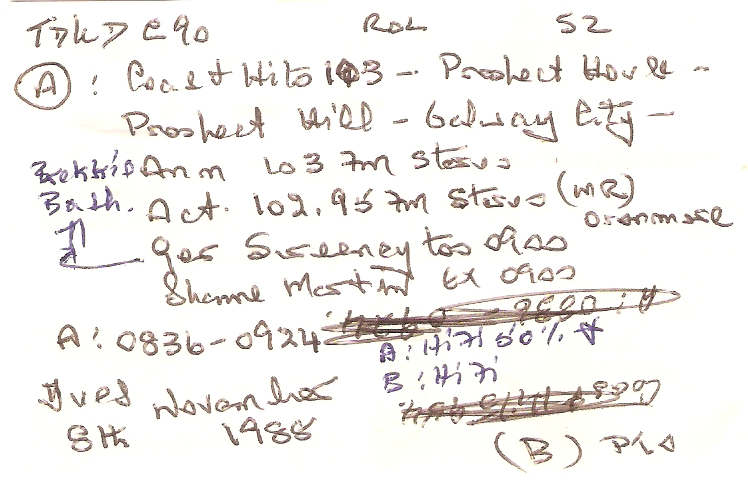 TDK D C90 RoL S2
(A): Coast Hits 103 - Prospect House -
Prospect Hill - Galway City -
Ann 103 FM Stereo
Bath. Act. 102.95 FM Stereo (MR)
Oranmore
Ger Sweeney to 0900
Shane Martin Ex 0900
A: 0836-0924
A: HiFi 50%
B: HiFi
Tues November
8th 1988
(B) P/A